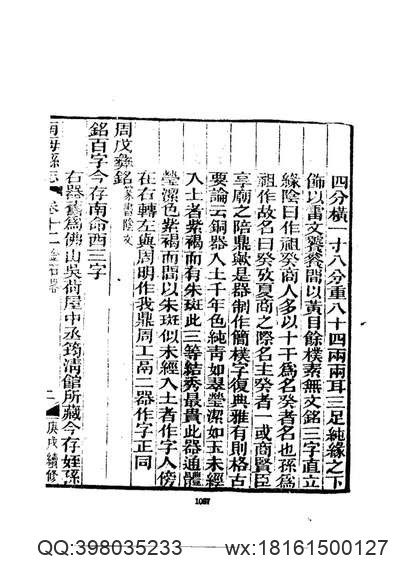 四分橫一寸八分重八十四兩兩耳三足純緣之下
飾以雷文饕餮間以黃目餘樸素無文銘三字直立
緣陰曰作祖癸商人多以十干爲名癸者名也孫爲
祖作故名曰癸攷夏商之際名主癸者一或商賢臣
享廟之陪鼎歟是器制作簡樸字復典雅有則格古
要論云銅器入土千年色純靑如翠瑩潔如玉未經
入土者紫褐而有朱斑此三等結秀最貴此器通體
瑩潔色紫褐而間以朱斑似未經入土者作字人傍
在右轉左與周明作我鼎周工鬲二器作字正同
周戊彝銘 篆書陰文
銘百字今存南命西三字
右器舊爲佛山吳荷屋中丞筠淸館所藏今存姪孫
南海縣志 卷十二 金石畧 二 庚戌續修
1087
QQ:398035233 wx:18161500127